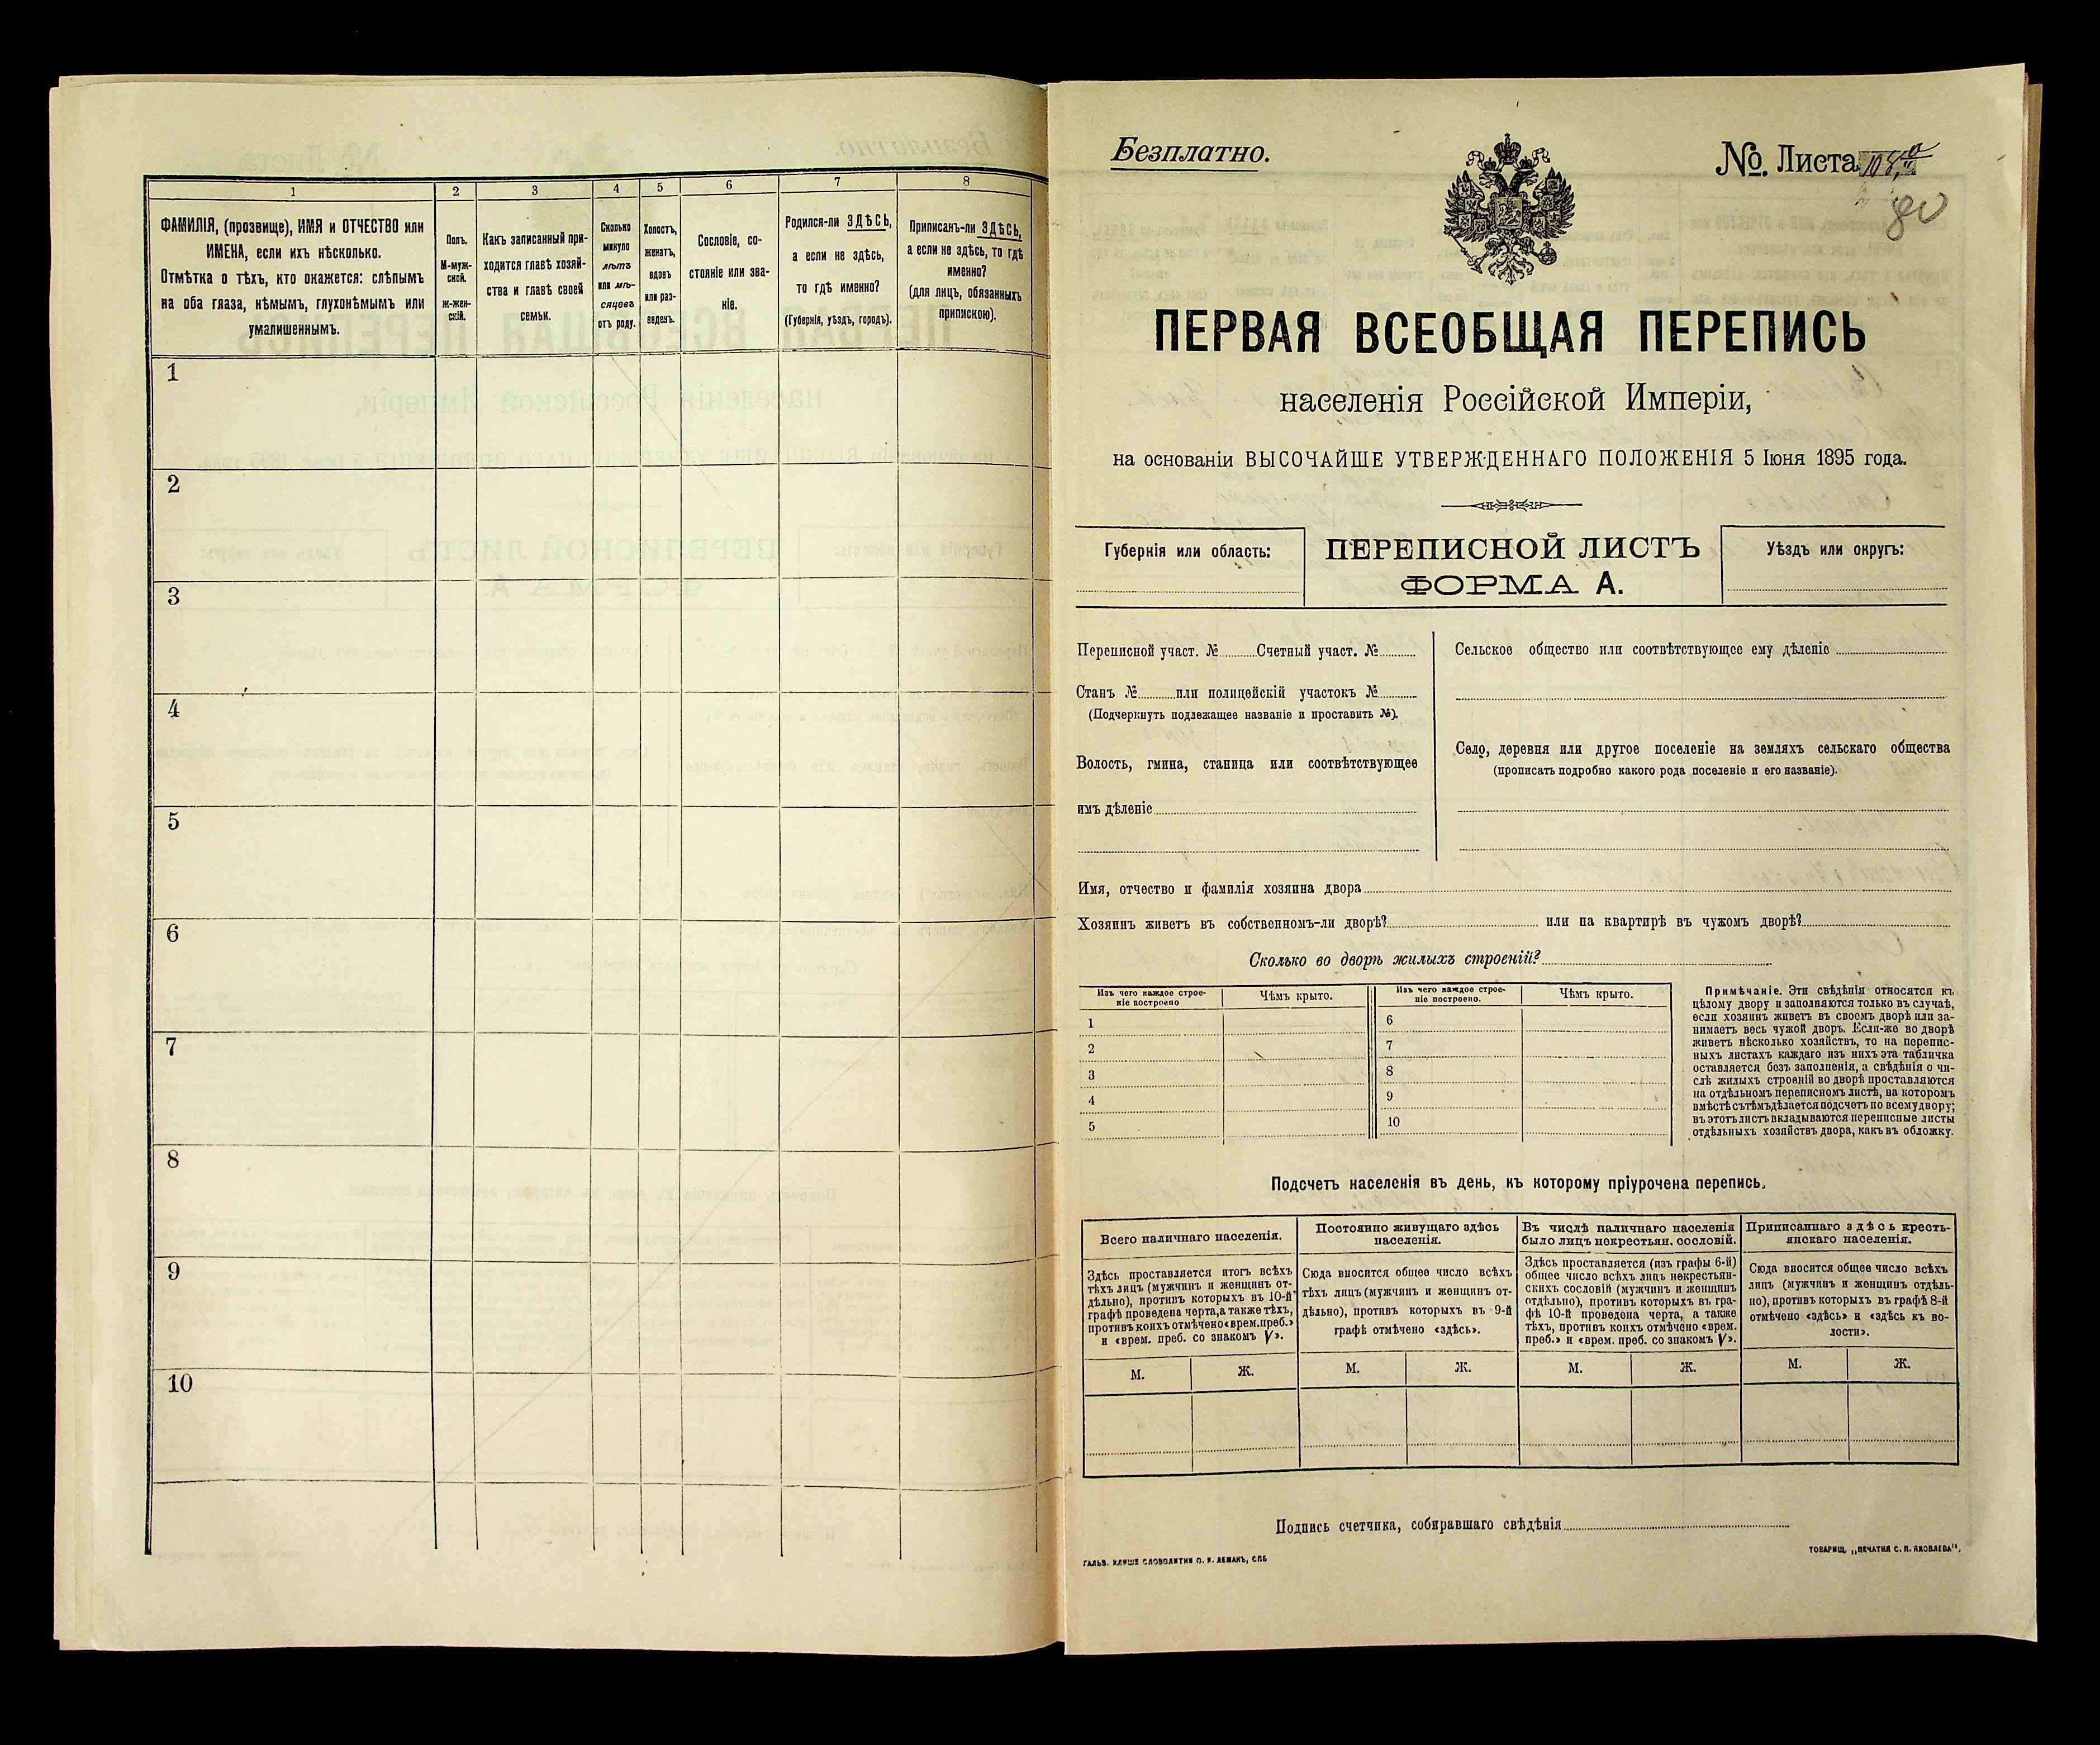 1 2 3 4 5 6 7 8
ФАМИЛІЯ, (прозвище), ИМЯ и ОТЧЕСТВО или
ИМЕНА, если ихъ нѣсколько.
Отмѣтка о тѣхъ, кто окажется: слѣпымъ
на оба глаза, нѣмымъ, глухонѣмымъ или
умалишеннымъ.
Полъ.
М-муж-
ской.
Ж-жен-
скій.
Какъ записанный при-
ходится главѣ хозяй-
ства и главѣ своей
семьи.
Сколько
минуло
лѣтъ
или мѣ-
сяцевъ
отъ роду.
Холостъ,
женатъ,
вдовъ
или раз-
веденъ.
Сословіе, со-
стояніе или зва-
ніе.
Родился-ли ЗДѢСЬ,
а если не здѣсь,
то гдѣ именно?
(Губернія, уѣздъ, городъ).
Приписанъ-ли ЗДѢСЬ,
а если не здѣсь, то гдѣ
именно?
(для лицъ, обязанныхъ
припискою).
1
2
3
4
5
6
7
8
9
10
Безплатно.
№. Листа
80
ПЕРВАЯ ВСЕОБЩАЯ ПЕРЕПИСЬ
населенія Россійской Имперіи,
на основаніи ВЫСОЧАЙШЕ УТВЕРЖДЕННАГО ПОЛОЖЕНІЯ 5 Іюня 1895 года.
Губернія или область:
ПЕРЕПИСНОЙ ЛИСТЪ
ФОРМА А.
Уѣздъ или округъ:
Переписной участ. № Счетный участ. №
Станъ № или полицейскій участокъ №
(Подчеркнуть подлежащее названіе и проставить №).
Волость, гмина, станица или соотвѣтствующее
имъ дѣленіе
Сельское общество или соотвѣтствующее ему дѣленіе
Село, деревня или другое поселеніе на земляхъ сельскаго общества
(прописать подробно какого рода поселеніе и его названіе).
Имя, отчество и фамилія хозяина двора
Хозяинъ живетъ въ собственномъ-ли дворѣ? или на квартирѣ въ чужомъ дворѣ?
Сколько во дворѣ жилыхъ строеній?
Изъ чего каждое строе-
ніе построено
Чѣмъ крыто.
Изъ чего каждое строе-
ніе построено.
Чѣмъ крыто.
1 6
2 7
3 8
4 9
5 10
Примѣчаніе. Эти свѣдѣнія относятся къ
цѣлому двору и заполняются только въ случаѣ,
если хозяинъ живетъ въ своемъ дворѣ или за-
нимаетъ весь чужой дворъ. Если-же во дворѣ
живетъ нѣсколько хозяйствъ, то на перепис-
ныхъ листахъ каждаго изъ нихъ эта табличка
оставляется безъ заполненія, а свѣдѣнія о чи-
слѣ жилыхъ строеній во дворѣ проставляются
на отдѣльномъ переписномъ листѣ, на которомъ
вмѣстѣ съ тѣмъ дѣлается подсчетъ по всему двору;
въ этотъ листъ вкладываются переписные листы
отдѣльныхъ хозяйствъ двора, какъ въ обложку.
Подсчетъ населенія въ день, къ которому пріурочена перепись.
Всего наличнаго населенія.
Постоянно живущаго здѣсь
населенія.
Въ числѣ наличнаго населенія
было лицъ некрестьян. сословій.
Приписаннаго здѣсь кресть-
янскаго населенія.
Здѣсь проставляется итогъ всѣхъ
тѣхъ лицъ (мужчинъ и женщинъ от-
дѣльно), противъ которыхъ въ 10-й
графѣ проведена черта, а также тѣхъ,
противъ коихъ отмѣчено «врем. преб.»
и «врем. преб. со знакомъ V».
Сюда вносится общее число всѣхъ
тѣхъ лицъ (мужчинъ и женщинъ от-
дѣльно), противъ которыхъ въ 9-й
графѣ отмѣчено «здѣсь».
Здѣсь проставляется (изъ графы 6-й)
общее число всѣхъ лицъ некрестьян-
скихъ сословій (мужчинъ и женщинъ
отдѣльно), противъ которыхъ въ гра-
фѣ 10-й проведена черта, а также
тѣхъ, противъ коихъ отмѣчено «врем.
преб.» и «врем. преб. со знакомъ V».
Сюда вносится общее число всѣхъ
лицъ (мужчинъ и женщинъ отдѣль-
но), противъ которыхъ въ графѣ 8-й
отмѣчено «здѣсь» и «здѣсь къ во-
лости».
М. Ж. М. Ж. М. Ж. М. Ж.
Подпись счетчика, собиравшаго свѣдѣнія
ГАЛЬВ. КЛИШЕ СЛОВОЛИТНИ О. И. ЛЕМАНЪ, СПБ
ТОВАРИЩ. „ПЕЧАТНЯ С. П. ЯКОВЛЕВА“,